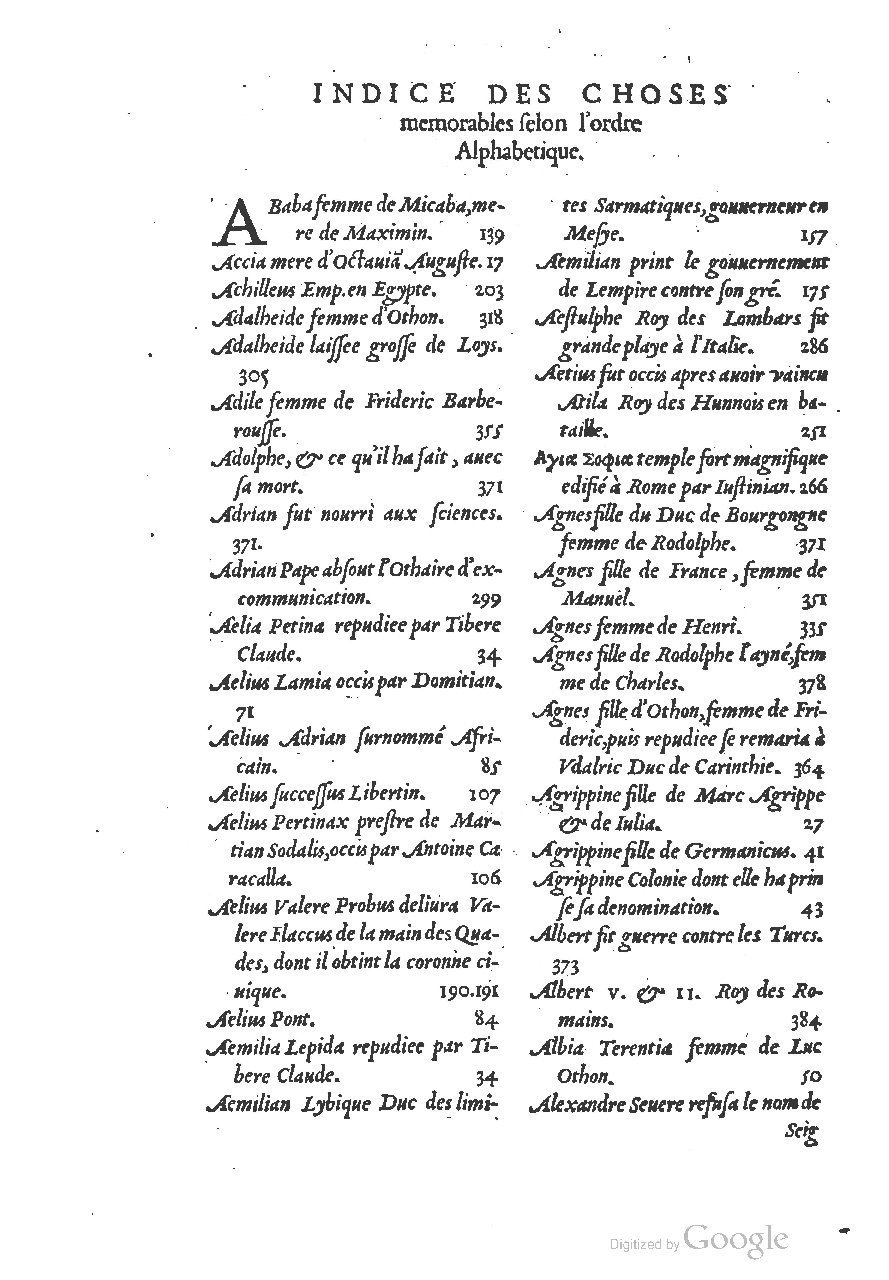 INDICE DES CHOSES
memorables ſelon l'ordre
Alphabetique.
ABaba femme de Micaba, me-
re de Maximin. 139
Accia mere d'Octauiã Auguſte. 17
Achilleus Emp. en Egypte. 203
Adalheide femme d'Othon. 318
Adalheide laiſſee groſſe de Loys.
305
Adile femme de Frideric Barbe-
rouſſe. 355
Adolphe, & ce qu'il ha fait, auec
ſa mort. 371
Adrian fut nourri aux ſciences.
371.
Adrian Pape abſout l'Othaire d'ex-
communication. 299
Aelia Petina repudiee par Tibere
Claude. 34
Aelius Lamia occis par Domitian.
71
Aelius Adrian ſurnommé Afri-
cain. 85
Aelius ſucceſſus Libertin. 107
Aelius Pertinax preſtre de Mar-
tian Sodalis, occis par Antoine Ca
racalla. 106
Aelius Valere Probus deliura Va-
lere Flaccus de la main des Qua-
des, dont il obtint la coronne ci-
uique. 190.191
Aelius Pont. 84
Aemilia Lepida repudiee par Ti-
bere Claude. 34
Aemilian Lybique Duc des limi-
tes Sarmatiques, gouuerneur en
Meſye. 157
Aemilian print le gouuernement
de Lempire contre ſon gré. 175
Aeſtulphe Roy des Lombars fit
grande playe à l'Italie. 286
Aetius fut occis apres auoir vaincu
Atila Roy des Hunnois en ba-
taille. 251
Αγια Σοφια temple fort magnifique
edifié à Rome par Iuſtinian. 266
Agnes fille du Duc de Bourgongne
femme de Rodolphe. 371
Agnes fille de France, femme de
Manuel. 351
Agnes femme de Henri. 335
Agnes fille de Rodolphe l'ayné, fem
me de Charles. 378
Agnes fille d'Othon, femme de Fri-
deric, puis repudiee ſe remaria à
Vdalric Duc de Carinthie. 364
Agrippine fille de Marc Agrippe
& de Iulia. 27
Agrippine fille de Germanicus. 41
Agrippine Colonie dont elle ha prin
ſe ſa denomination. 43
Albert fit guerre contre les Turcs.
373
Albert v. & II. Roy des Ro-
mains. 384
Albia Terentia femme de Luc
Othon. 50
Alexandre Seuere refuſa le nom de
Seig
Digitized by Google